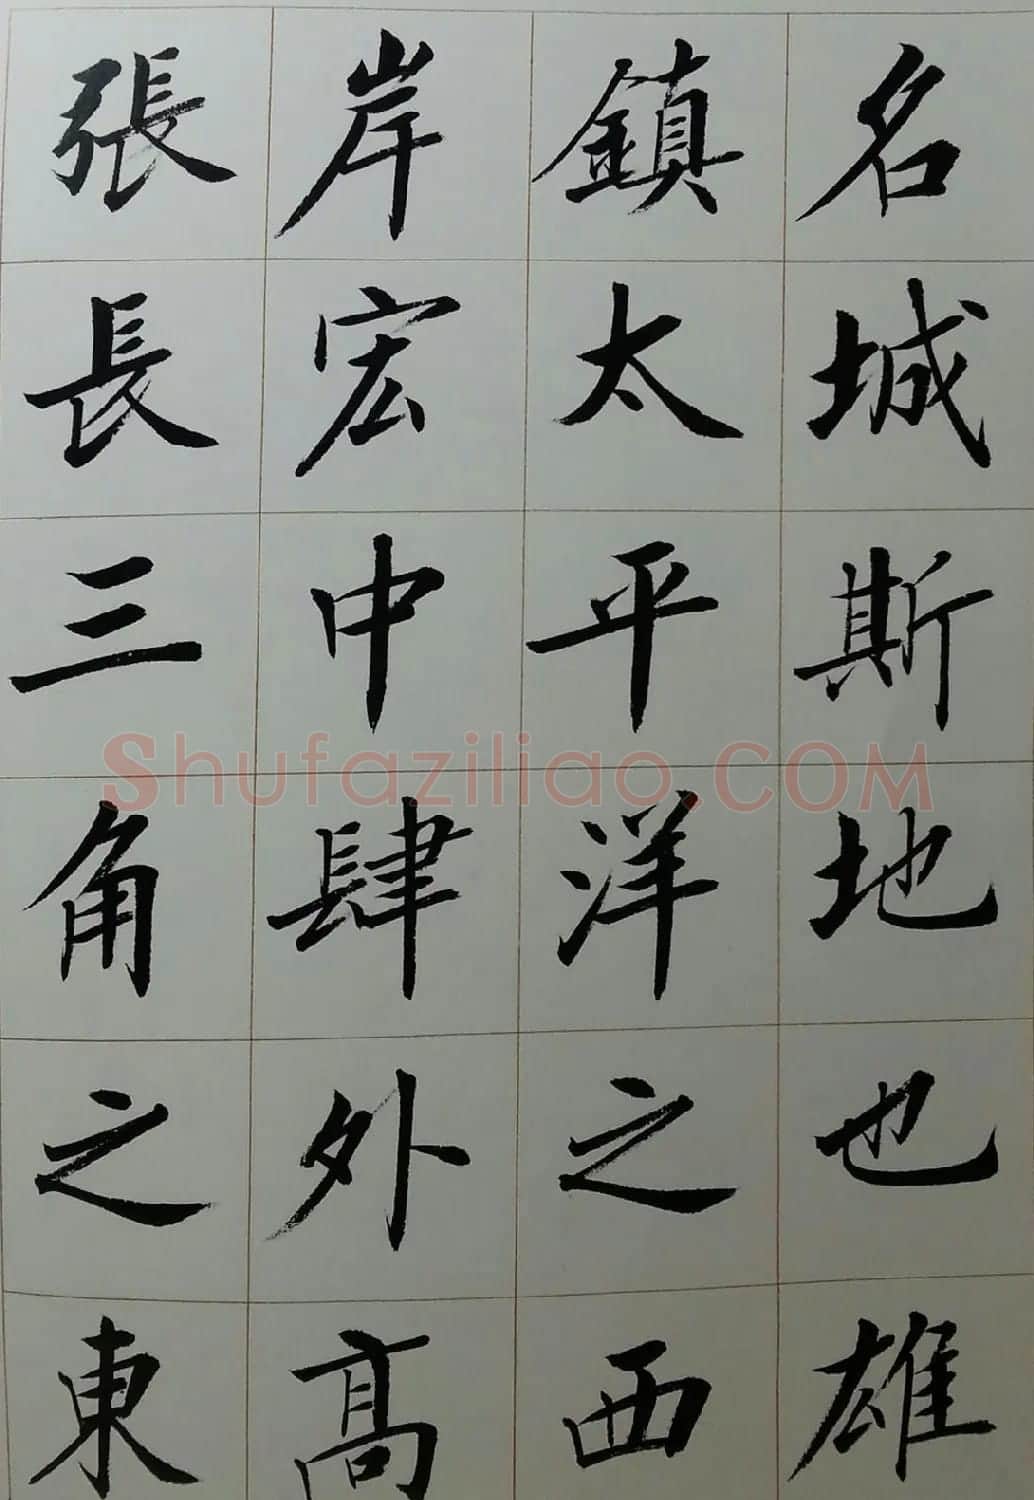 名城斯地也雄
鎮太平洋之西
岸宏中肆外高
張長三角之東
Shufaziliao.COM